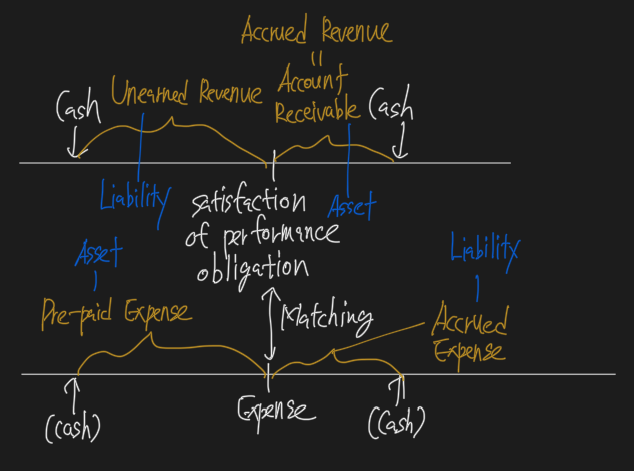 Accrued Revenue
=
Account
Receivable
Unearned Revenue
Cash
Cash
Liability
Asset
satisfaction
of performance
obligation
Asset
Liability
Pre-paid Expense
Matching
Accrued
Expense
Expense
(cash)
(Cash)